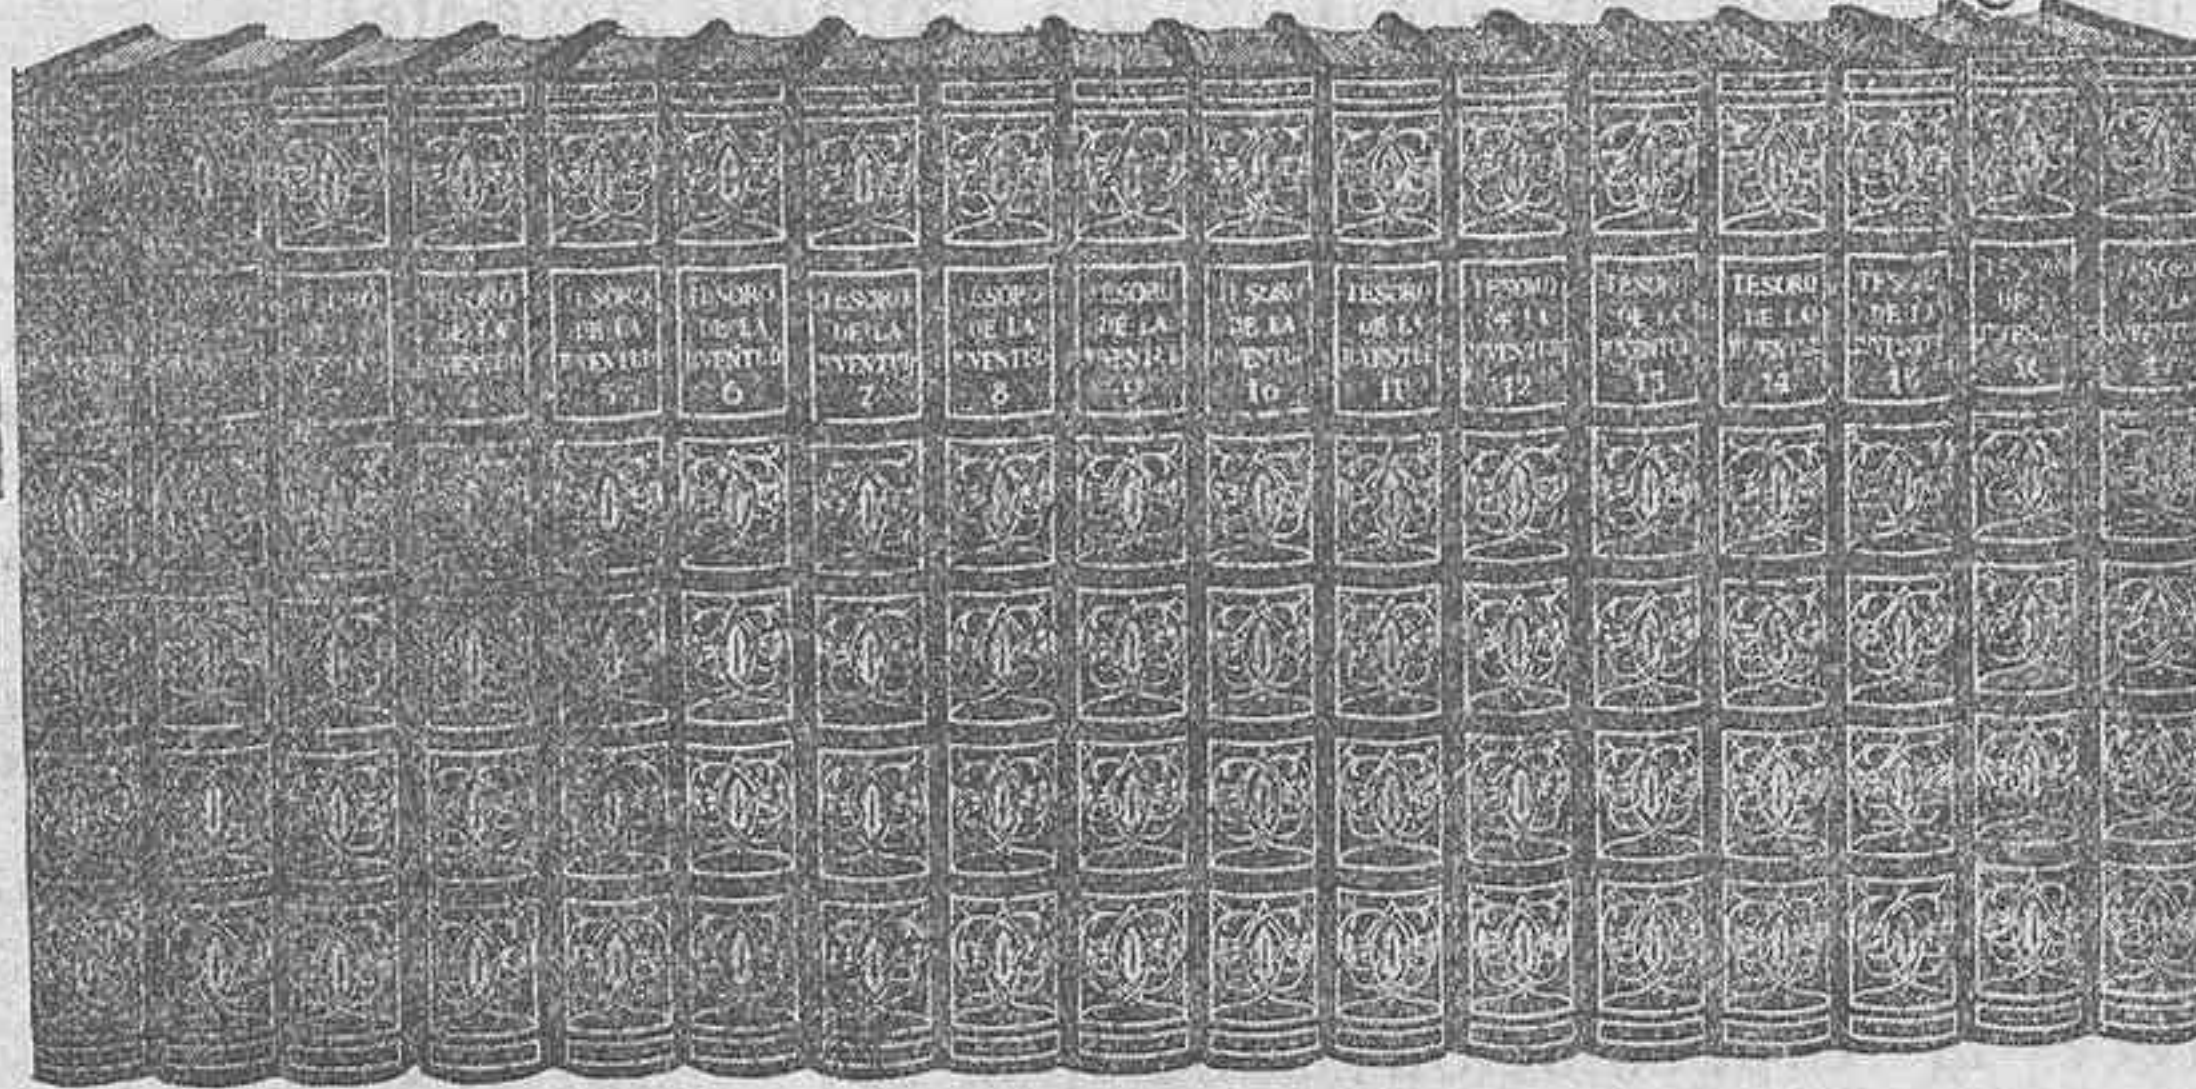 TESORO
DE LA
TESORO
DE LA
JUVENTUD
5
TESORO
DE LA
JUVENTUD
6
TESORO
DE LA
JUVENTUD
7
TESORO
DE LA
JUVENTUD
8
TESORO
DE LA
JUVENTUD
9
TESORO
DE LA
JUVENTUD
10
TESORO
DE LA
JUVENTUD
11
TESORO
DE LA
JUVENTUD
12
TESORO
DE LA
JUVENTUD
13
TESORO
DE LA
JUVENTUD
14
TESORO
DE LA
JUVENTUD
15
TESORO
DE LA
JUVENTUD
16
TESORO
DE LA
JUVENTUD